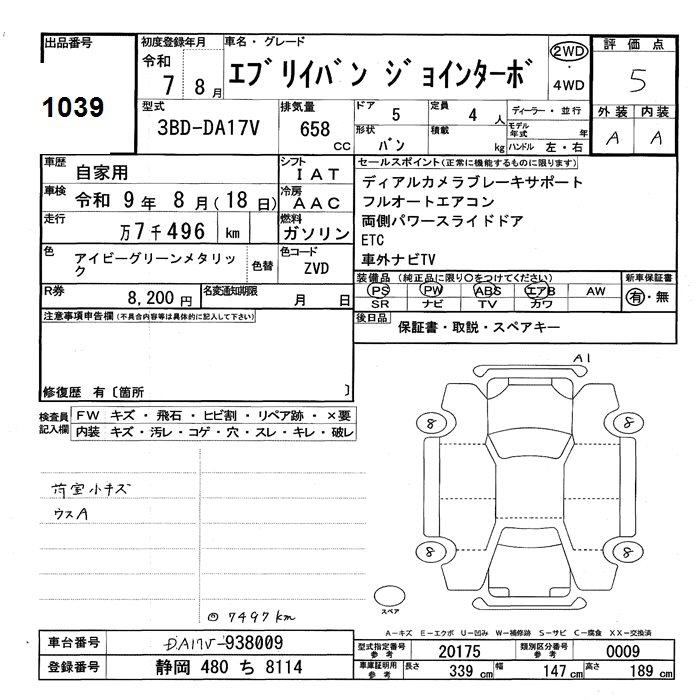 出品番号
1039
初度登録年月
令和
7 8月
車名・グレード
エブリイバン ジョインターボ
2WD
・
4WD
評価点
5
外装 内装
A A
型式
3BD-DA17V
排気量
658 CC
ドア 5
定員 4 人
形状 バン
積載 kg
ディーラー・並行
モデル年式 年
ハンドル 左・右
車歴 自家用
シフト IAT
車検 令和 9年 8月(18日)
冷房 AAC
走行 万7千496 km
燃料 ガソリン
色 アイビーグリーンメタリック
色替
色コード ZVD
R券 8,200円
名変通知期限 月 日
セールスポイント(正常に機能するものに限ります)
ディアルカメラブレーキサポート
フルオートエアコン
両側パワースライドドア
ETC
車外ナビTV
装備品 (純正品に限り○をつけてください)
PS PW ABS エアB AW
SR ナビ TV カワ
新車保証書
有・無
後日品 保証書・取説・スペアキー
注意事項申告欄(不具合内容等は具体的に記入して下さい)
修復歴 有〔箇所 〕
検査員記入欄
FW キズ・飛石・ヒビ割・リペア跡・×要
内装 キズ・汚レ・コゲ・穴・スレ・キレ・破レ
荷室小キズ
ウスA
◎7497km
A1
8 8
8 8
スペア
A-キズ E-エクボ U-凹み W-補修跡 S-サビ C-腐食 XX-交換済
車台番号 DA17V-938009
登録番号 静岡 480 ち 8114
型式指定番号 参考 20175
類別区分番号 参考 0009
車庫証明用 参考 長さ 339 cm 幅 147 cm 高さ 189 cm